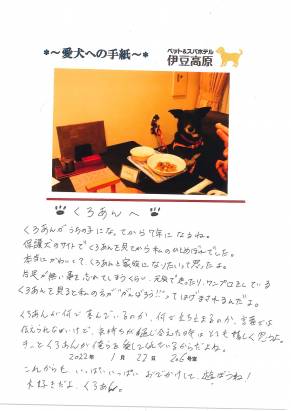 *～愛犬への手紙～*
ペット&スパホテル
伊豆高原
くろあんへ
くろあんがうちの子になってから7年になるね。
保護犬のサイトでくろあんを見てから私のひとめぼれでした。
本当にかわいくて、くろあんと家族になりたいって思ったよ。
片足が無い事を忘れてしまうくらい、元気で走ったり、ワンプロをしている
くろあんを見ると私の方が"がんばろう!!"ってはげまされるんだよ。
くろあんが何で喜んでいるのか、何で立ち止まるのか、言葉では
伝えられないけど、気持ちが通じ合えた時はとても嬉しく思うよ。
きっとくろあんが僕らを愛してくれているからだよね。
2022年 1月 27日 206号室
これからも いっぱいいっぱい おでかけして、遊ぼうね!
大好きだよ、くろあん。